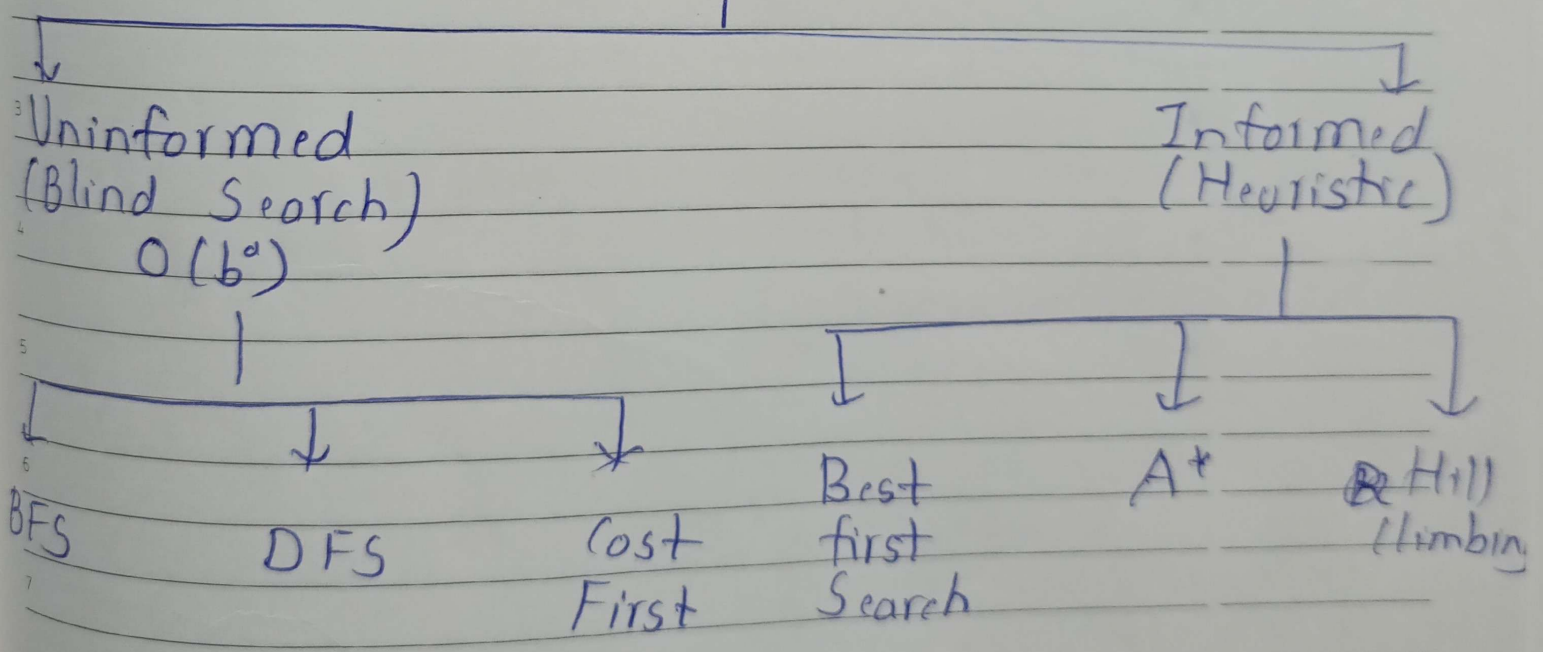 Uninformed
(Blind Search)
O(b^d)
Informed
(Heuristic)
BFS
DFS
Cost
First
Best
first
Search
A*
Hill
Climbing
3
4
5
6
7